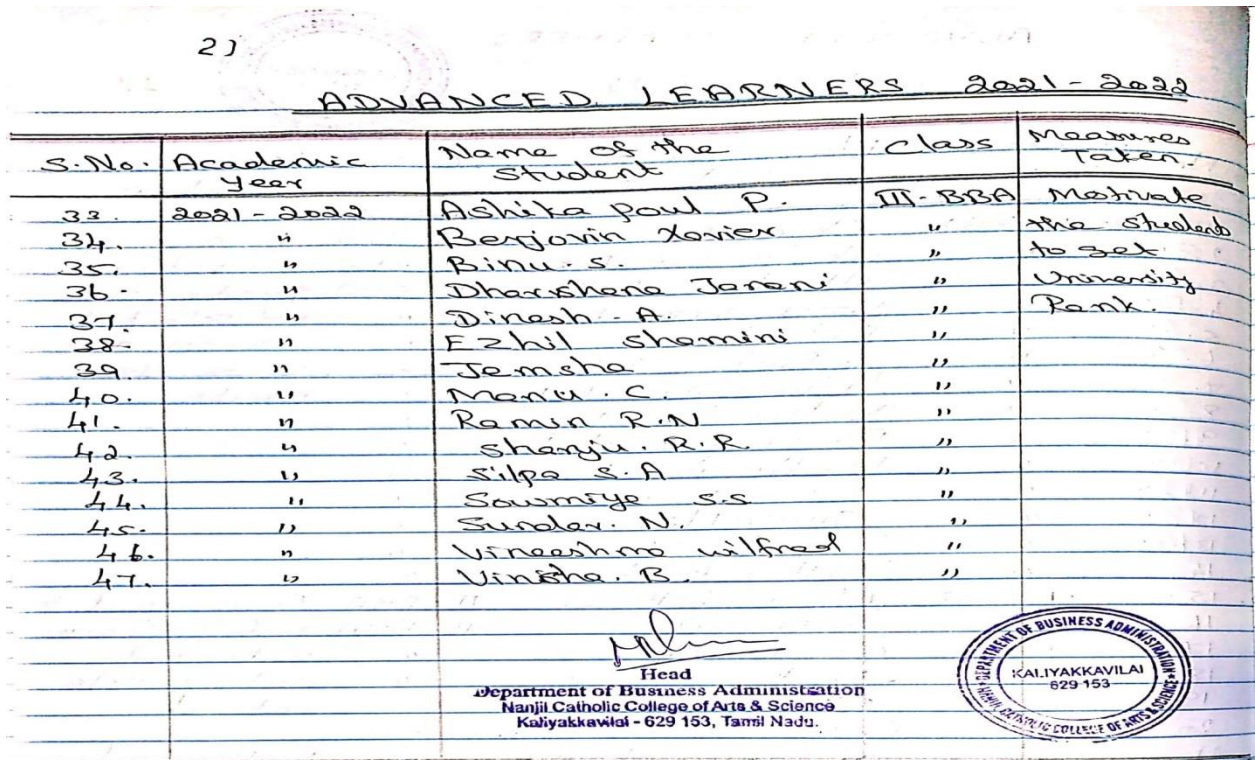 2]
ADVANCED LEARNERS 2021-2022
S.No. Academic Year Name of the Student Class Measures Taken.
33. 2021-2022 Ashika Poul P. III-BBA Motivate
34. " Berjovin Xavier " the students
35. " Binu. S. " to get
36. " Dharshana Janani " University
37. " Dinesh. A. " Rank.
38. " Ezhil Shamini "
39. " Jemsha "
40. " Manu. C. "
41. " Ramin R.N "
42. " Shanju. R.R "
43. " Silpa S.A "
44. " Sowmiya S.S "
45. " Sundar. N. "
46. " Vineeshma wilfred "
47. " Vinisha. B. "
Head
Department of Business Administration
Nanjil Catholic College of Arts & Science
Kaliyakkavilai - 629 153, Tamil Nadu.
DEPARTMENT OF BUSINESS ADMINISTRATION
KALIYAKKAVILAI
629 153
NANJIL CATHOLIC COLLEGE OF ARTS & SCIENCE